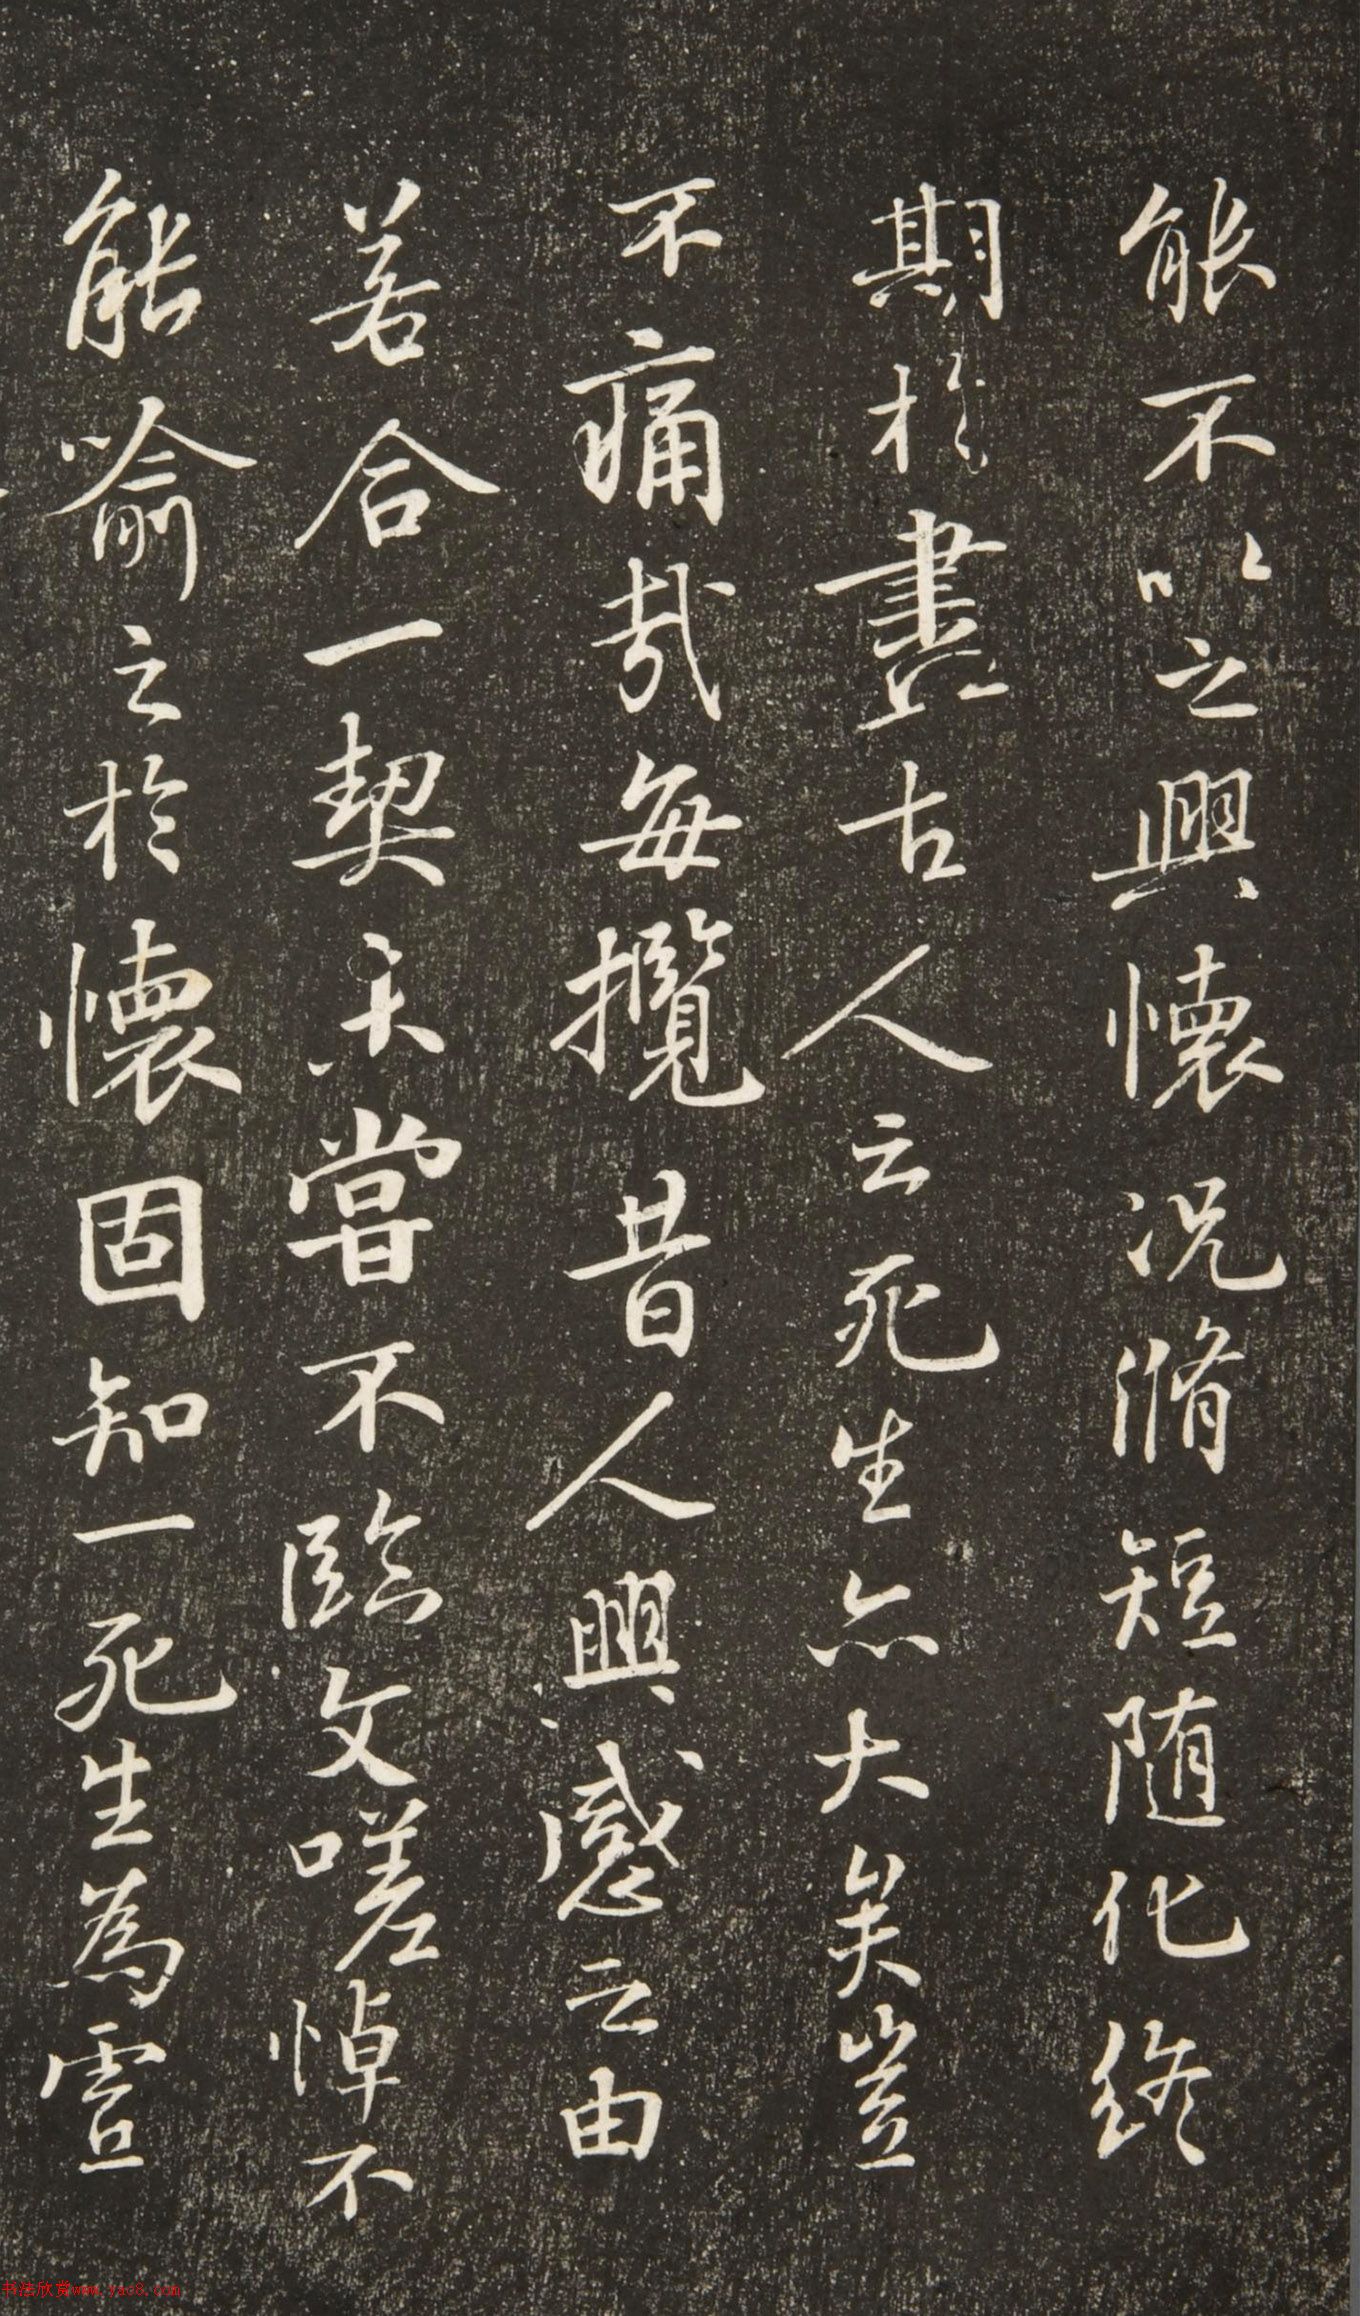 能不以之興懷況脩短随化終
期於盡古人云死生亦大矣豈
不痛哉每攬昔人興感之由
若合一契未嘗不臨文嗟悼不
能喻之於懷固知一死生為虛
书法欣赏www.yac8.com